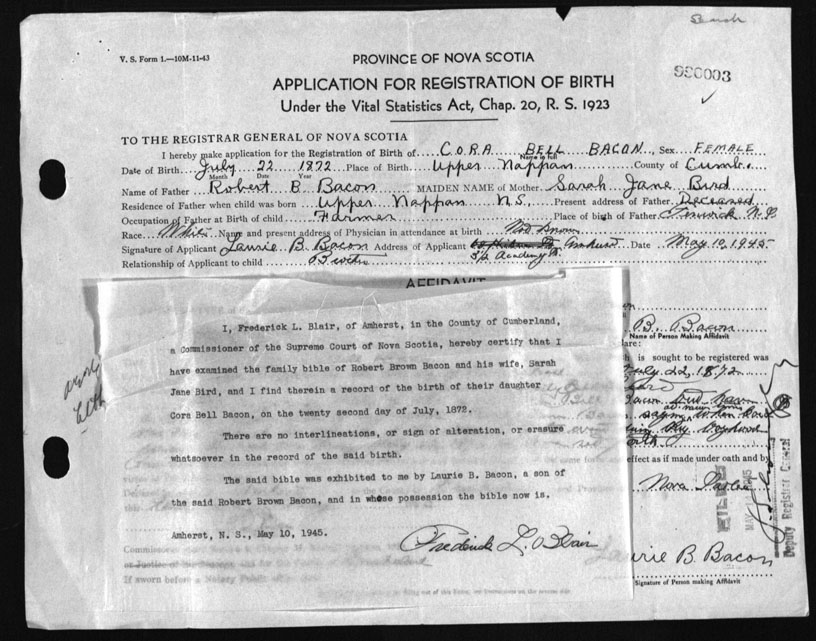 Search
V. S. Form 1.—10M-11-43
PROVINCE OF NOVA SCOTIA
APPLICATION FOR REGISTRATION OF BIRTH
Under the Vital Statistics Act, Chap. 20, R. S. 1923
TO THE REGISTRAR GENERAL OF NOVA SCOTIA
I hereby make application for the Registration of Birth of CORA BELL BACON Sex FEMALE
Name in full
Date of Birth July 22 1872 Place of Birth Upper Nappan County of Cumb.
Month Date Year
Name of Father Robert B. Bacon MAIDEN NAME of Mother Sarah Jane Bird
Residence of Father when child was born Upper Nappan N.S. Present address of Father Deceased
Occupation of Father at Birth of child Farmer Place of birth of Father
Race White Name and present address of Physician in attendance at birth Not known
Signature of Applicant Laurie B. Bacon Address of Applicant Amherst Date May 10, 1945
Relationship of Applicant to child Brother Academy St.
AFFIDAVIT
I, Frederick L. Blair, of Amherst, in the County of Cumberland,
a Commissioner of the Supreme Court of Nova Scotia, hereby certify that I
have examined the family bible of Robert Brown Bacon and his wife, Sarah
Jane Bird, and I find therein a record of the birth of their daughter
Cora Bell Bacon, on the twenty second day of July, 1872.
There are no interlineations, or sign of alteration, or erasure
whatsoever in the record of the said birth.
The said bible was exhibited to me by Laurie B. Bacon, a son of
the said Robert Brown Bacon, and in whose possession the bible now is.
Amherst, N. S., May 10, 1945.
Frederick L. Blair
B. Bacon
Name of Person Making Affidavit
is sought to be registered was
July 22, 1872
effect as if made under oath and by
Nova Scotia
FILED
Deputy Registrar General
Laurie B. Bacon
Signature of Person making Affidavit
If sworn before a Notary Public